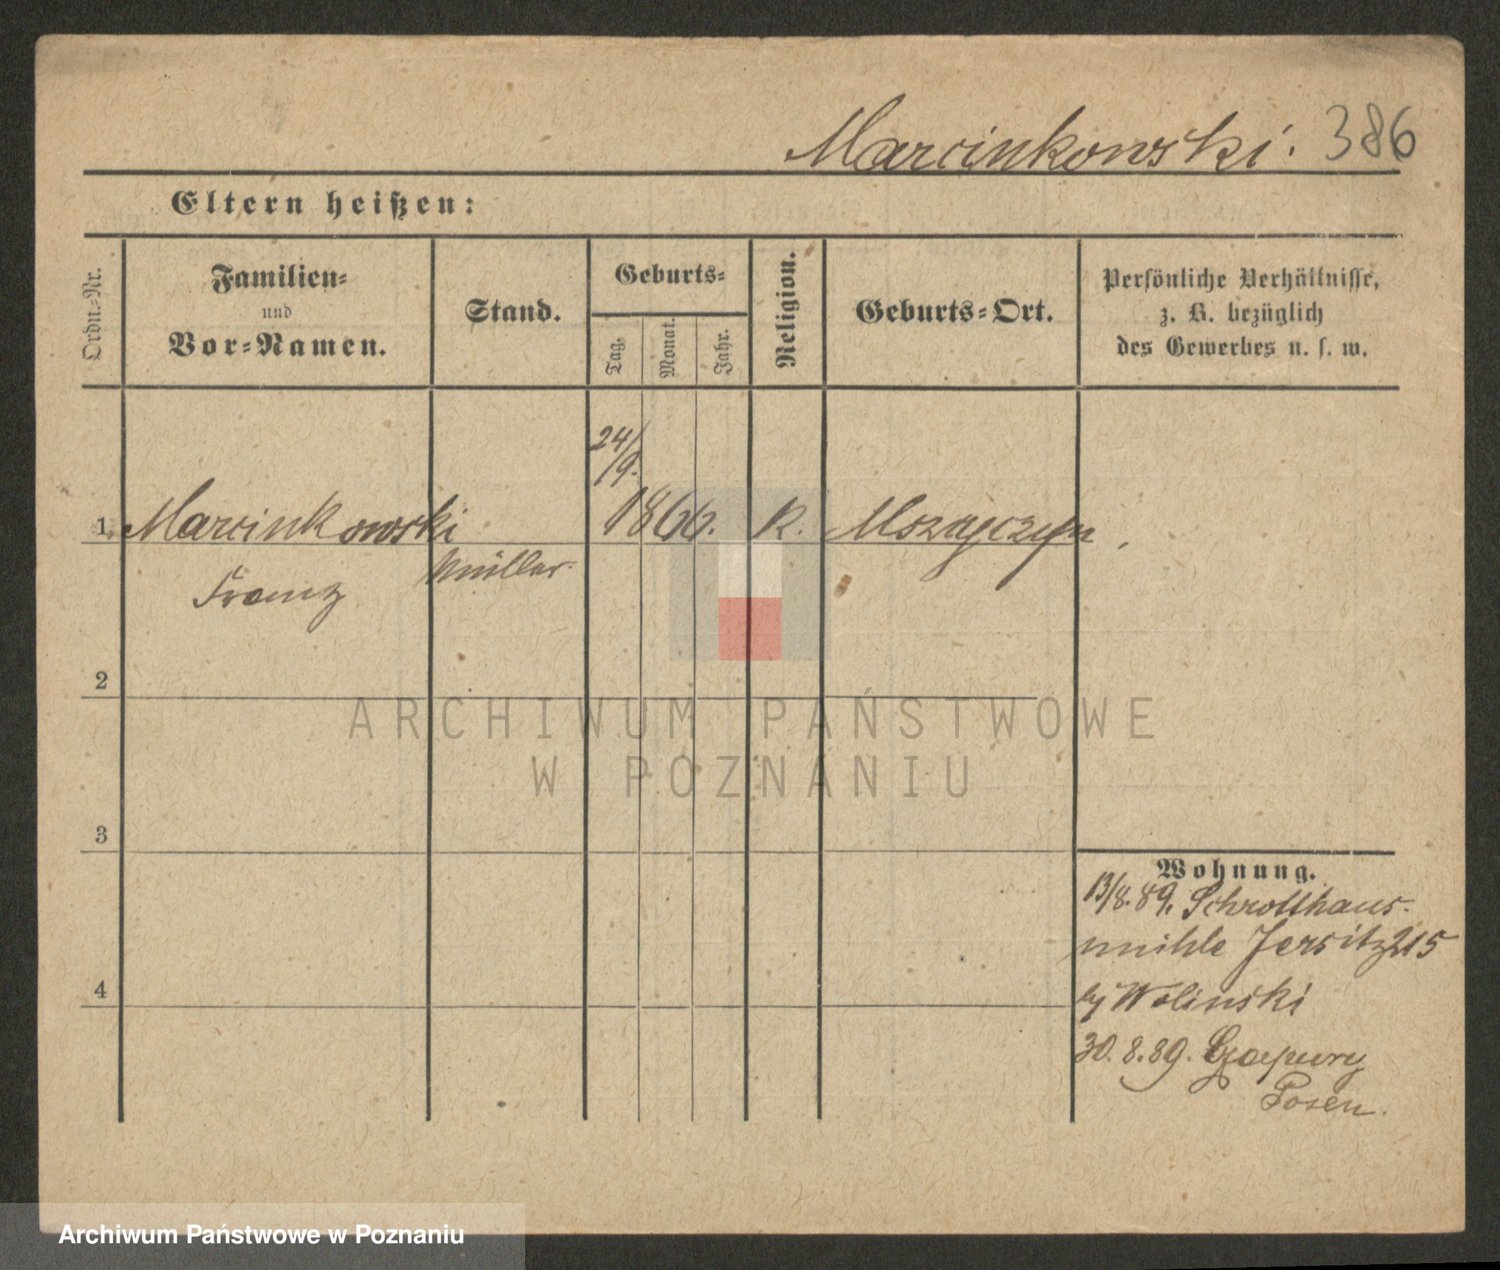 Marcinkowski. 386
Eltern heißen:
Ordn.-Nr.
Familien-
und
Vor-Namen.
Stand.
Geburts-
Tag.
Monat.
Jahr.
Religion.
Geburts-Ort.
Persönliche Verhältnisse,
z. B. bezüglich
des Gewerbes u. s. w.
24/9.
1 Marcinkowski 1866. K. Mszczyczyn.
Franz Müller
2
3
4
Wohnung.
13/8.89. Schrotthaus-
mühle Jersitz 215
by Wolinski
30.8.89.
Posen.
ARCHIWUM PAŃSTWOWE
W POZNANIU
Archiwum Państwowe w Poznaniu